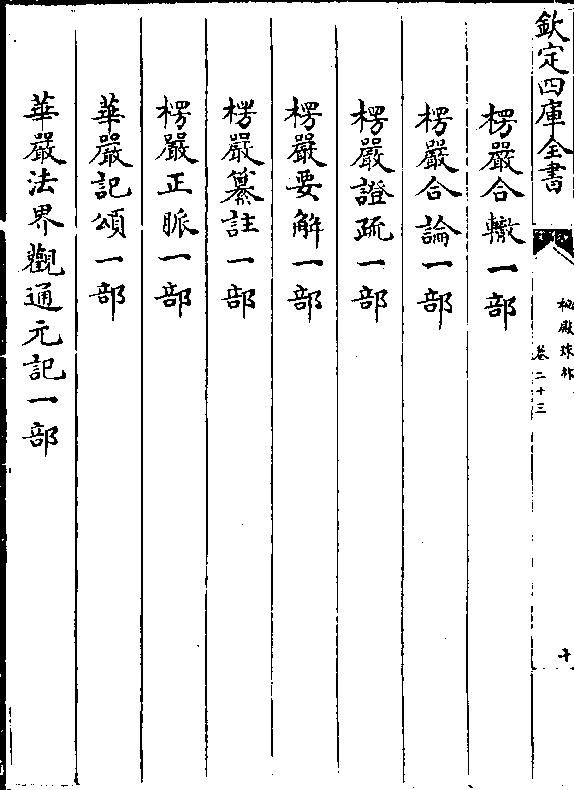 欽定四庫全書
秘殿珠林
卷二十三
十
楞嚴合轍一部
楞嚴合論一部
楞嚴證疏一部
楞嚴要解一部
楞嚴纂註一部
楞嚴正脈一部
華嚴記頌一部
華嚴法界觀通元記一部